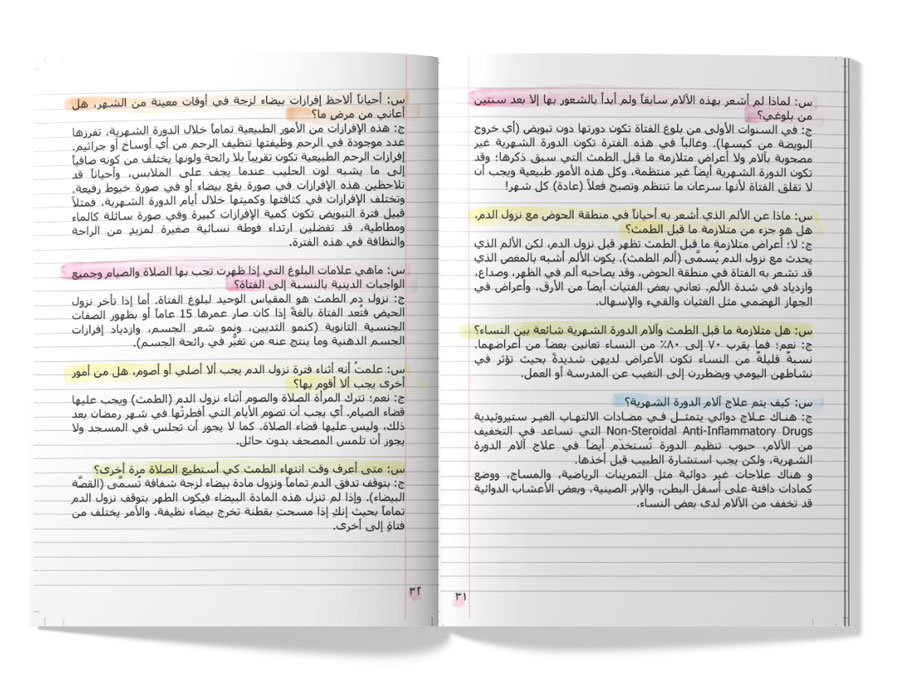 س: لماذا لم أشعر بهذه الآلام سابقاً ولم أبدأ بالشعور بها إلا بعد سنتين
من بلوغي؟
ج: في السنوات الأولى من بلوغ الفتاة تكون دورتها دون تبويض (أي خروج
البويضة من كيسها). وغالباً في هذه الفترة تكون الدورة الشهرية غير
مصحوبة بآلام ولا أعراض متلازمة ما قبل الطمث التي سبق ذكرها؛ وقد
تكون الدورة الشهرية أيضاً غير منتظمة، وكل هذه الأمور طبيعية ويجب أن
لا تقلق الفتاة لأنها سرعات ما تنتظم وتصبح فعلاً (عادة) كل شهر!
س: ماذا عن الألم الذي أشعر به أحياناً في منطقة الحوض مع نزول الدم،
هل هو جزء من متلازمة ما قبل الطمث؟
ج: لا؛ أعراض متلازمة ما قبل الطمث تظهر قبل نزول الدم، لكن الألم الذي
يحدث مع نزول الدم يُسمَّى (ألم الطمث). يكون الألم أشبه بالمغص الذي
قد تشعر به الفتاة في منطقة الحوض، وقد يصاحبه ألم في الظهر، وصداع،
وازدياد في شدة الألم. تعاني بعض الفتيات أيضاً من الأرق، وأعراض في
الجهاز الهضمي مثل الغثيان والقيء والإسهال.
س: هل متلازمة ما قبل الطمث وآلام الدورة الشهرية شائعة بين النساء؟
ج: نعم؛ فما يقرب ٧٠ إلى ٨٠٪ من النساء تعانين بعضاً من أعراضهما.
نسبةٌ قليلةٌ من النساء تكون الأعراض لديهن شديدةً بحيث تؤثر في
نشاطهن اليومي ويضطررن إلى التغيب عن المدرسة أو العمل.
س: كيف يتم علاج آلام الدورة الشهرية؟
ج: هناك علاج دوائي يتمثل في مضادات الالتهاب الغير ستيروئيدية
Non-Steroidal Anti-Inflammatory Drugs التي تساعد في التخفيف
من الآلام، حبوب تنظيم الدورة تُستخدَم أيضاً في علاج آلام الدورة
الشهرية، ولكن يجب استشارة الطبيب قبل أخذها.
و هناك علاجات غير دوائية مثل التمرينات الرياضية، والمساج، ووضع
كمادات دافئة على أسفل البطن، والإبر الصينية، وبعض الأعشاب الدوائية
قد تخفف من الآلام لدى بعض النساء.
٣١
س: أحياناً ألاحظ إفرازات بيضاء لزجة في أوقات معينة من الشهر، هل
أعاني من مرض ما؟
ج: هذه الإفرازات من الأمور الطبيعية تماماً خلال الدورة الشهرية، تفرزها
غدد موجودة في الرحم وظيفتها تنظيف الرحم من أي أوساخ أو جراثيم.
إفرازات الرحم الطبيعية تكون تقريباً بلا رائحة ولونها يختلف من كونه صافياً
إلى ما يشبه لون الحليب عندما يجف على الملابس، وأحياناً قد
تلاحظين هذه الإفرازات في صورة بقع بيضاء أو في صورة خيوط رفيعة.
وتختلف الإفرازات في كثافتها وكميتها خلال أيام الدورة الشهرية، فمثلاً
قبيل فترة التبويض تكون كمية الإفرازات كبيرة وفي صورة سائلة كالماء
ومطاطية، قد تفضلين ارتداء فوطة نسائية صغيرة لمزيدٍ من الراحة
والنظافة في هذه الفترة.
س: ماهي علامات البلوغ التي إذا ظهرت تجب بها الصلاة والصيام وجميع
الواجبات الدينية بالنسبة إلى الفتاة؟
ج: نزول دم الطمث هو المقياس الوحيد لبلوغ الفتاة. أما إذا تأخر نزول
الحيض فتُعد الفتاة بالغةً إذا كان صار عمرها 15 عاماً أو بظهور الصفات
الجنسية الثانوية (كنمو الثديين، ونمو شعر الجسم، وازدياد إفرازات
الجسم الدهنية وما ينتج عنه من تغيُّر في رائحة الجسم).
س: علمتُ أنه أثناء فترة نزول الدم يجب ألا أصلي أو أصوم، هل من أمور
أخرى يجب ألا أقوم بها؟
ج: نعم؛ تترك المرأة الصلاة والصوم أثناء نزول الدم (الطمث) ويجب عليها
قضاء الصيام. أي يجب أن تصوم الأيام التي أفطرتْها في شهر رمضان بعد
ذلك، وليس عليها قضاء الصلاة. كما لا يجوز أن تجلس في المسجد ولا
يجوز أن تلمس المصحف بدون حائل.
س: متى أعرف وقت انتهاء الطمث كي أستطيع الصلاة مرة أخرى؟
ج: بتوقف تدفق الدم تماماً ونزول مادة بيضاء لزجة شفافة تُسمَّى (القصَّة
البيضاء). وإذا لم تنزل هذه المادة البيضاء فيكون الطهر بتوقف نزول الدم
تماماً بحيث إنكِ إذا مسحتِ بقطنة تخرج بيضاء نظيفة. والأمر يختلف من
فتاةٍ إلى أخرى.
٣٢